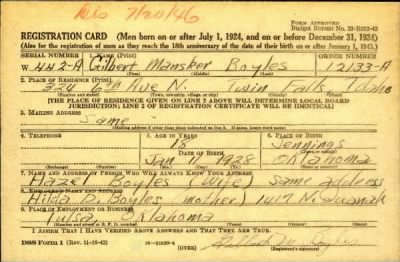 Dis 7/20/46
Form Approved.
Budget Bureau No. 33-R283-43
REGISTRATION CARD (Men born on or after July 1, 1924, and on or before December 31, 1924)
(Also for the registration of men as they reach the 18th anniversary of the date of their birth on or after January 1, 1925.)
SERIAL NUMBER 1. NAME (Print) ORDER NUMBER
W. 442-A Gilbert Mansker Boyles 12133-A
(First) (Middle) (Last)
2. PLACE OF RESIDENCE (Print)
326 6th Ave N. Twin Falls Idaho
(Number and street) (Town, township, village, or city) (County) (State)
[THE PLACE OF RESIDENCE GIVEN ON LINE 2 ABOVE WILL DETERMINE LOCAL BOARD
JURISDICTION; LINE 2 OF REGISTRATION CERTIFICATE WILL BE IDENTICAL]
3. MAILING ADDRESS
Same
4. TELEPHONE 5. AGE IN YEARS 6. PLACE OF BIRTH
18 Jennings
DATE OF BIRTH
Jan 1928 Oklahoma
(Exchange) (Number) (Mo.) (Day) (Yr.) (State or country)
7. NAME AND ADDRESS OF PERSON WHO WILL ALWAYS KNOW YOUR ADDRESS
Hazel Boyles (Wife) same address
8. EMPLOYER'S NAME AND ADDRESS
Hilda D. Boyles (mother) 1417 N. Quanah
9. PLACE OF EMPLOYMENT OR BUSINESS
Tulsa, Oklahoma
I AFFIRM THAT I HAVE VERIFIED ABOVE ANSWERS AND THAT THEY ARE TRUE.
DSS Form 1 (Rev. 11-16-42) (OVER)